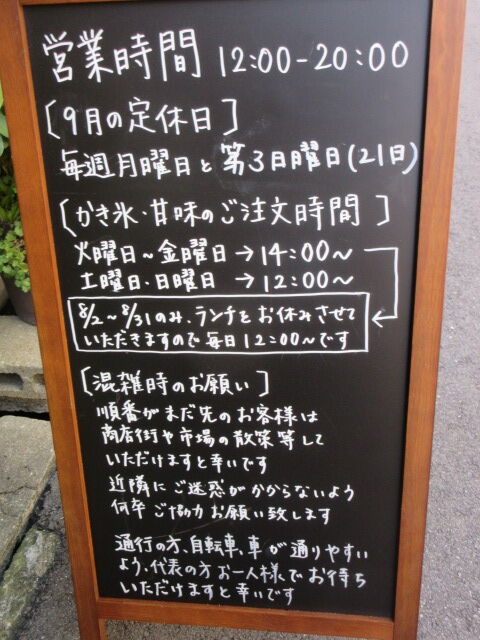 営業時間 12:00-20:00
[9月の定休日]
毎週月曜日と第3日曜日(21日)
[かき氷・甘味のご注文時間]
火曜日~金曜日→14:00~
土曜日・日曜日→12:00~
8/2~8/31のみ、ランチをお休みさせて
いただきますので毎日12:00~です
[混雑時のお願い]
順番がまだ先のお客様は
商店街や市場の散策等して
いただけますと幸いです
近隣にご迷惑がかからないよう
何卒ご協力お願い致します
通行の方、自転車、車が通りやすい
よう、代表の方お一人様でお待ち
いただけますと幸いです